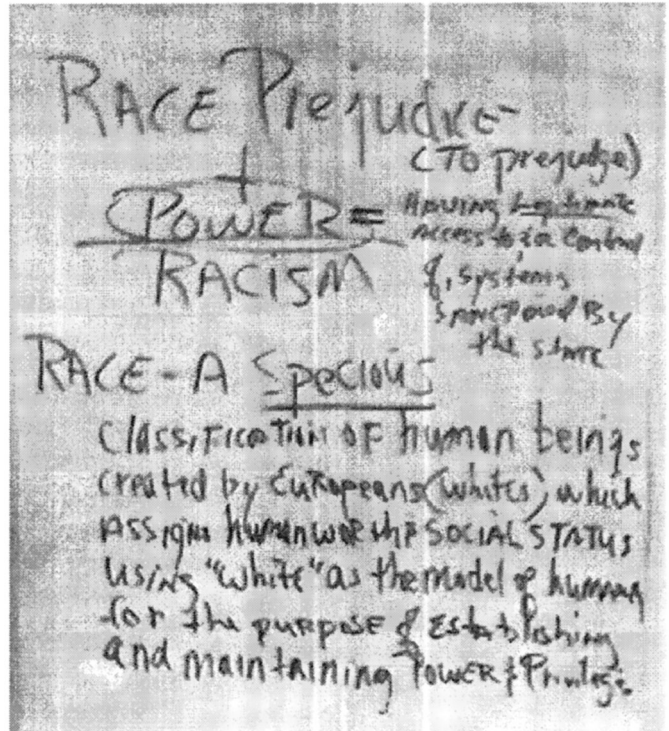 RACE Prejudice-
(To prejudge)
+
POWER = Having Legitimate
access to ... control
of, systems
sanctioned By
the state
RACISM
RACE - A Specious
classification of human beings
created by Europeans (whites) which
assigns human worth & SOCIAL STATUS
using "white" as the model of human
for the purpose of establishing
and maintaining POWER & Privilege.